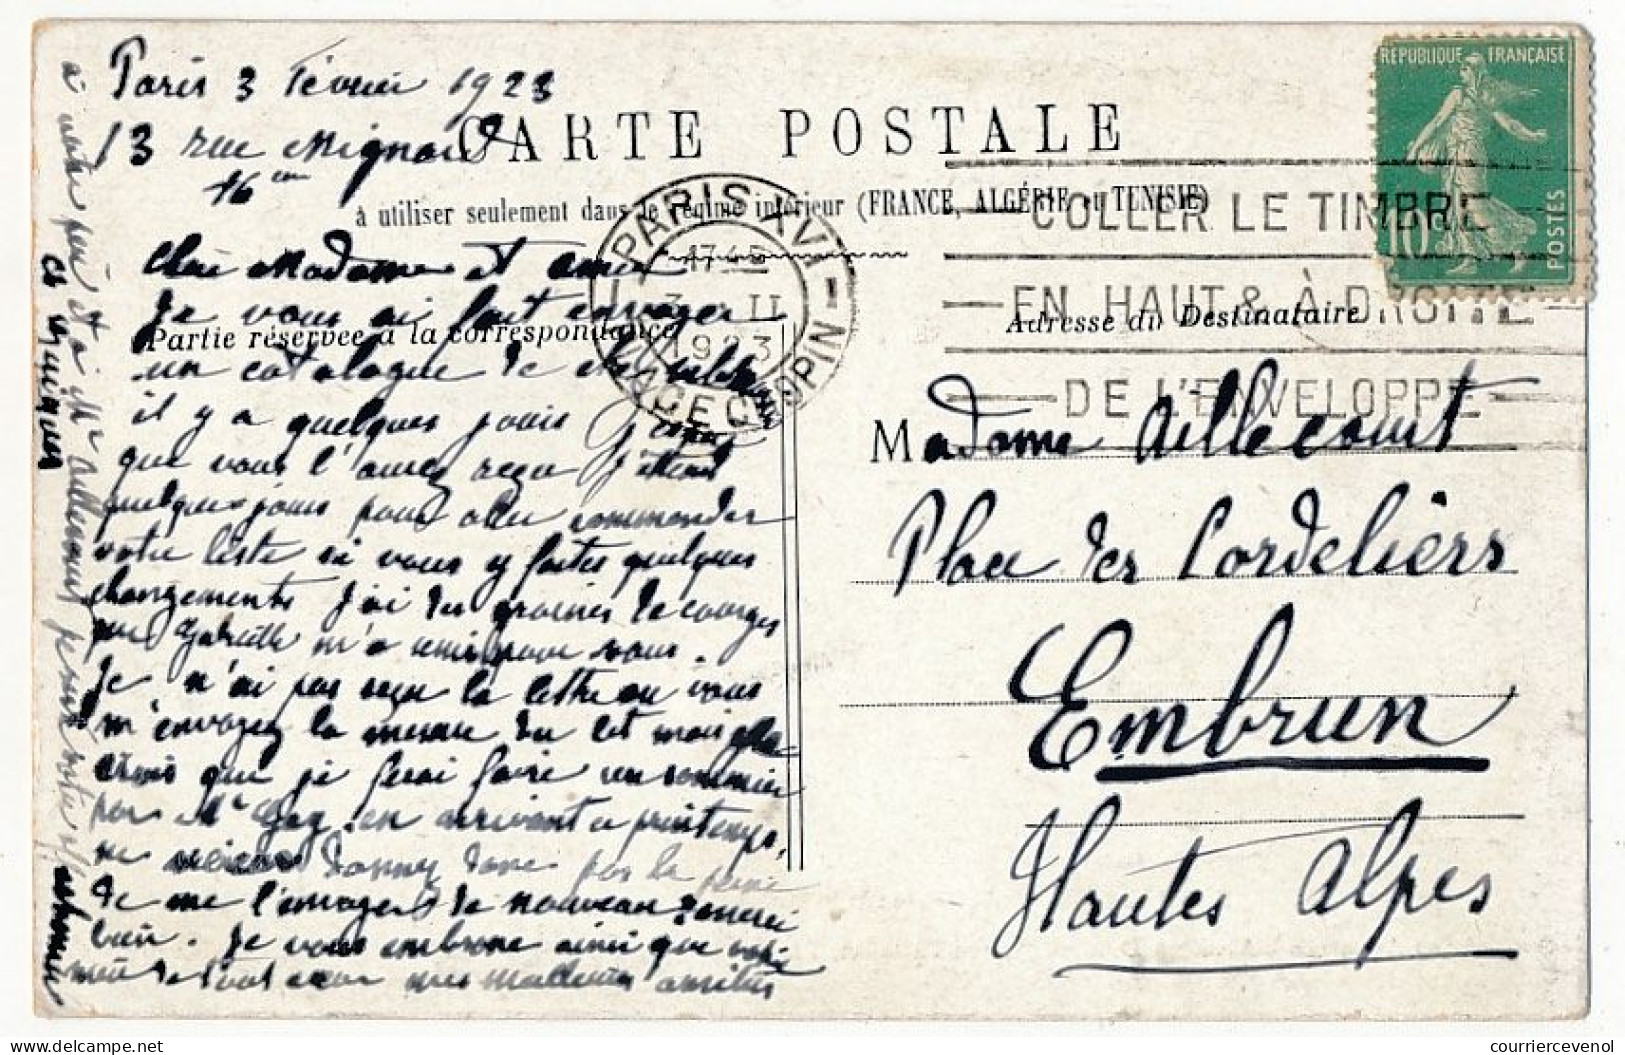 Paris 3 Février 1923
13 rue Mignard
16 em
CARTE POSTALE
à utiliser seulement dans le régime intérieur (FRANCE, ALGÉRIE ou TUNISIE)
Partie réservée à la correspondance
Adresse du Destinataire
RÉPUBLIQUE FRANÇAISE
10
POSTES
PARIS XVI
17 45
3 II
1923
PLACE CHOPIN
COLLER LE TIMBRE
EN HAUT & À DROITE
DE L'ENVELOPPE
Chère Madame et amie
Je vous ai fait envoyer
un catalogue de
il y a quelques jours
que vous l'aurez reçu j'attends
quelques jours pour aller commander
votre liste si vous y faites quelques
changements J'ai des graines de courges
que Gabrielle m'a remis pour vous.
Je n'ai pas reçu la lettre ou vous
m'envoyez la mesure du lit mais
crois que je ferai faire un sommier
par Mr en arrivant a printemps,
ne vous donnez donc pas la peine
de me l'envoyer de nouveau merci
bien. Je vous embrasse ainsi que votre
mère de tout cœur mes meilleures amitiés
à votre père et à Mr Aillecourt
Madame Aillecourt
Place des Cordeliers
Embrun
Hautes Alpes
www.delcampe.net
courriercevenol